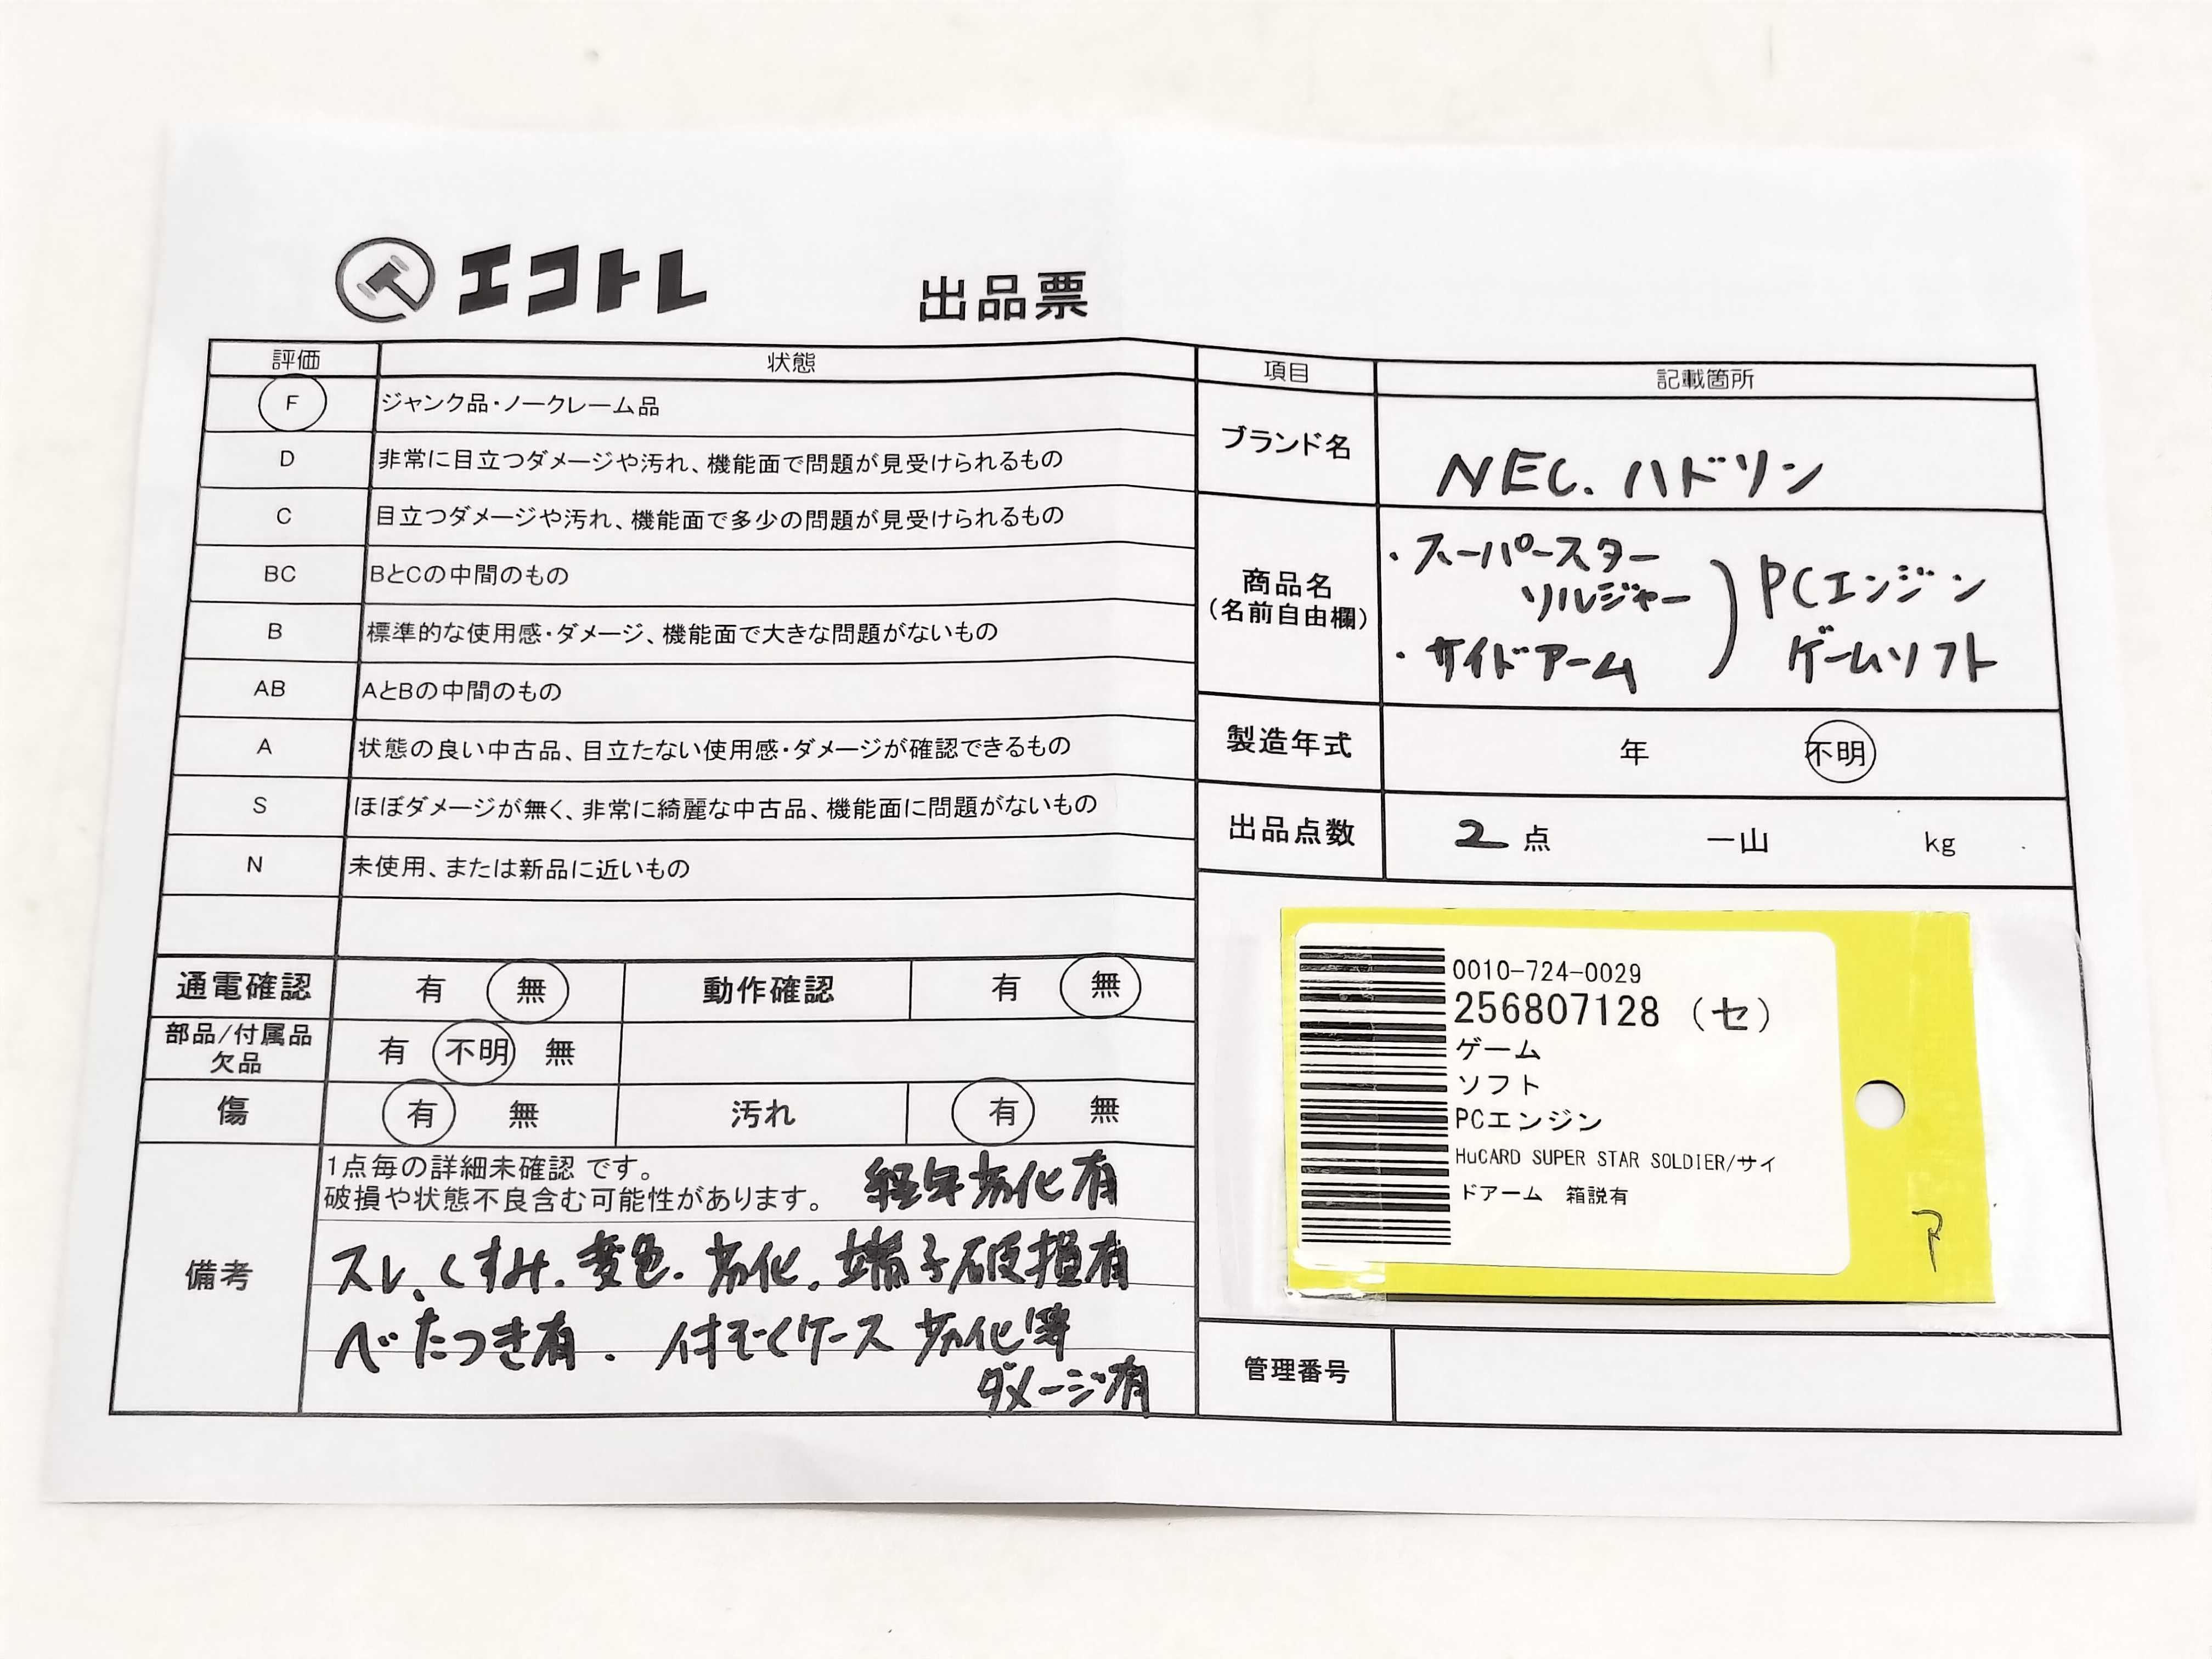 エコトレ 出品票
評価 状態
F ジャンク品・ノークレーム品
D 非常に目立つダメージや汚れ、機能面で問題が見受けられるもの
C 目立つダメージや汚れ、機能面で多少の問題が見受けられるもの
BC BとCの中間のもの
B 標準的な使用感・ダメージ、機能面で大きな問題がないもの
AB AとBの中間のもの
A 状態の良い中古品、目立たない使用感・ダメージが確認できるもの
S ほぼダメージが無く、非常に綺麗な中古品、機能面に問題がないもの
N 未使用、または新品に近いもの
通電確認 有 無 動作確認 有 無
部品/付属品
欠品 有 不明 無
傷 有 無 汚れ 有 無
備考
1点毎の詳細未確認 です。
破損や状態不良含む可能性があります。 経年劣化有
スレ、くすみ、変色、劣化、端子破損有
べたつき有、付ぞくケース劣化等
ダメージ有
項目 記載箇所
ブランド名 NEC、ハドソン
商品名
(名前自由欄)
・スーパースター
ソルジャー
・サイドアーム
PCエンジン
ゲームソフト
製造年式 年 不明
出品点数 2点 一山 kg
0010-724-0029
256807128 (セ)
ゲーム
ソフト
PCエンジン
HuCARD SUPER STAR SOLDIER/サイ
ドアーム 箱説有
ア
管理番号